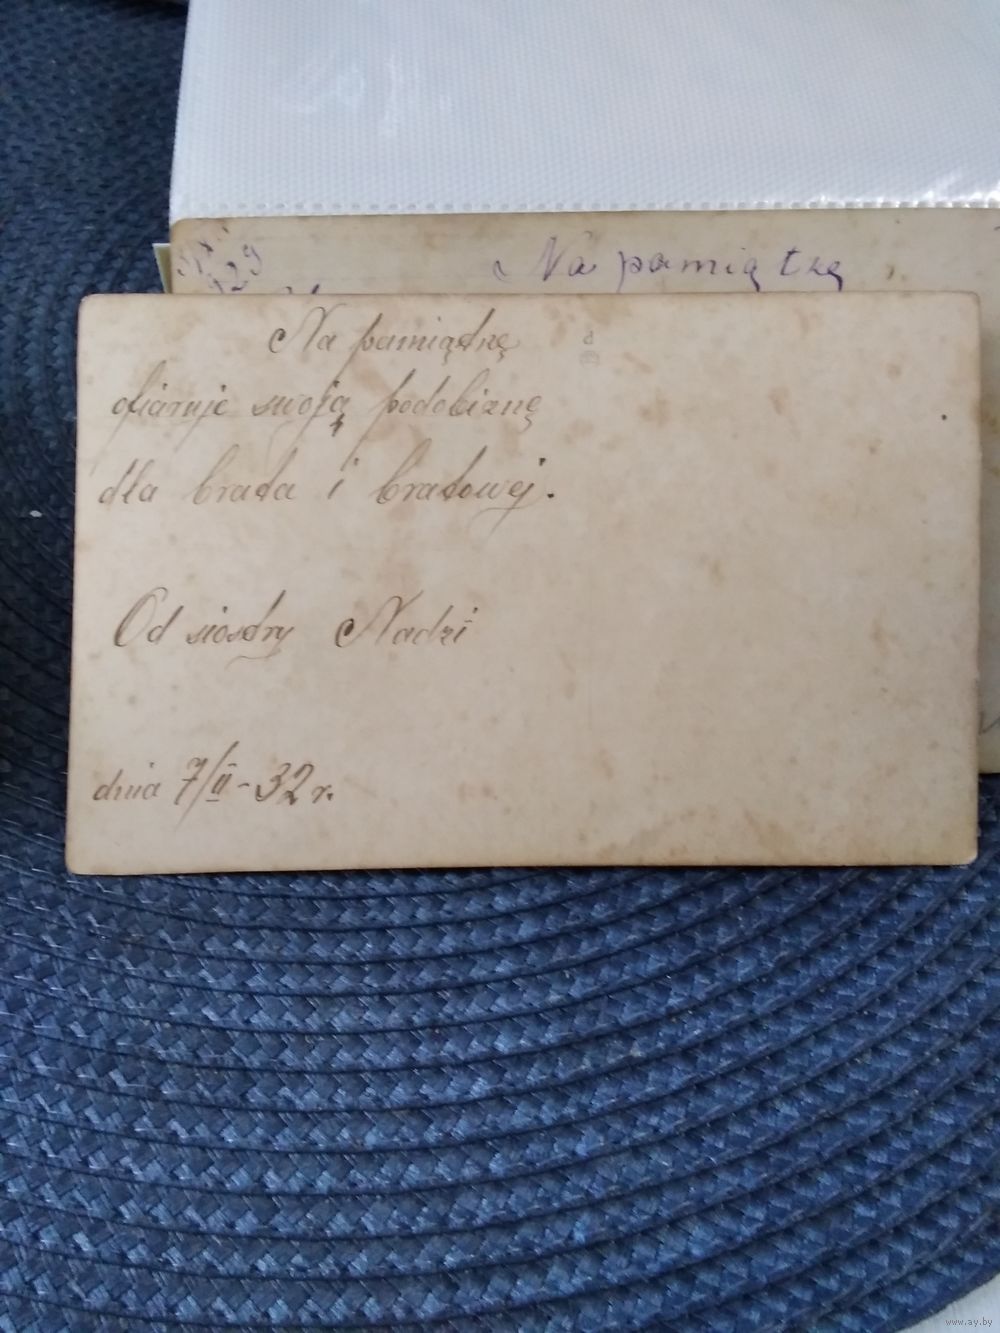 29
Na pamiątkę
Na pamiątkę
ofiaruje swoją podobiznę
dla brata i bratowej.
Od siostry Nadzi
dnia 7/II - 32 r.
www.ay.by